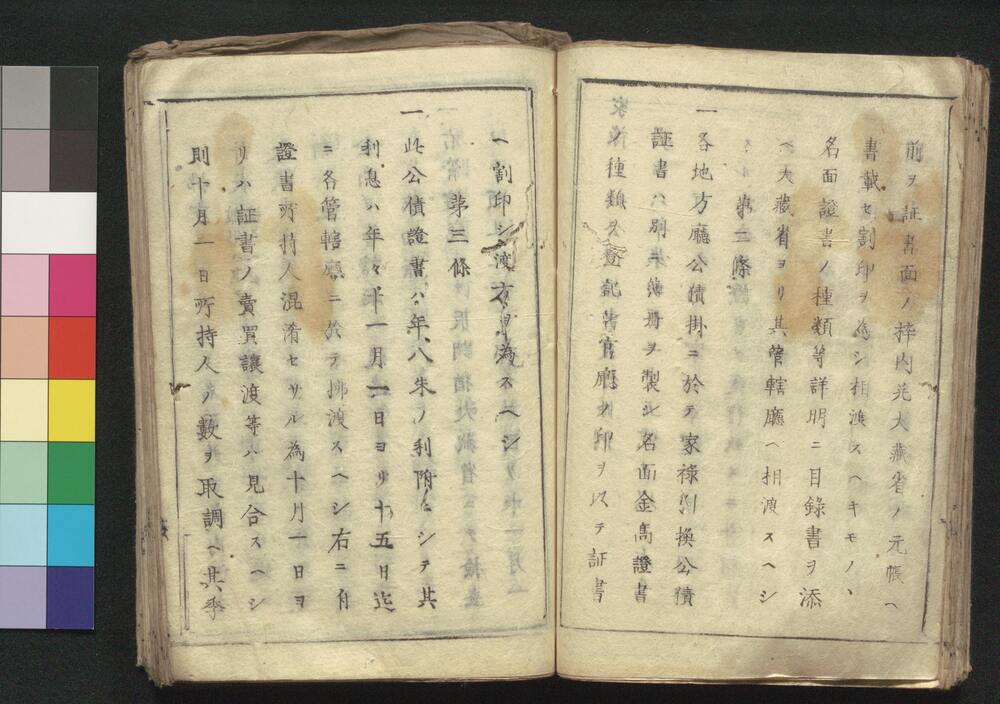 前ヲ証書面ノ枠内ヘ大蔵省ノ元帳ヘ
書載セ割印ヲ為シ相渡スヘキモノヽ
名面證書ノ種類等詳明ニ目録書ヲ添
ヘ大蔵省ヨリ其管轄廳ヘ相渡スヘシ
第二條
一各地方廳公債掛ニ於テ家禄引換公債
証書ハ刷来簿冊ヲ製シ名面金高證書
ノ種類ヲ登記シ官廳ノ印ヲ以テ証書
ヘ割印シ渡方ヲ為スヘシ
第三條
一此公債證書ハ年八朱ノ利附ニシテ其
利息ハ年々十一月一日ヨリ十五日迄
ニ各管轄廳ニ於テ拂渡スヘシ右ニ付
證書所持人混淆セサル為十月一日ヨ
リハ証書ノ賣買讓渡等ハ見合スヘシ
則十月一日所持人ノ數ヲ取調ヘ其季